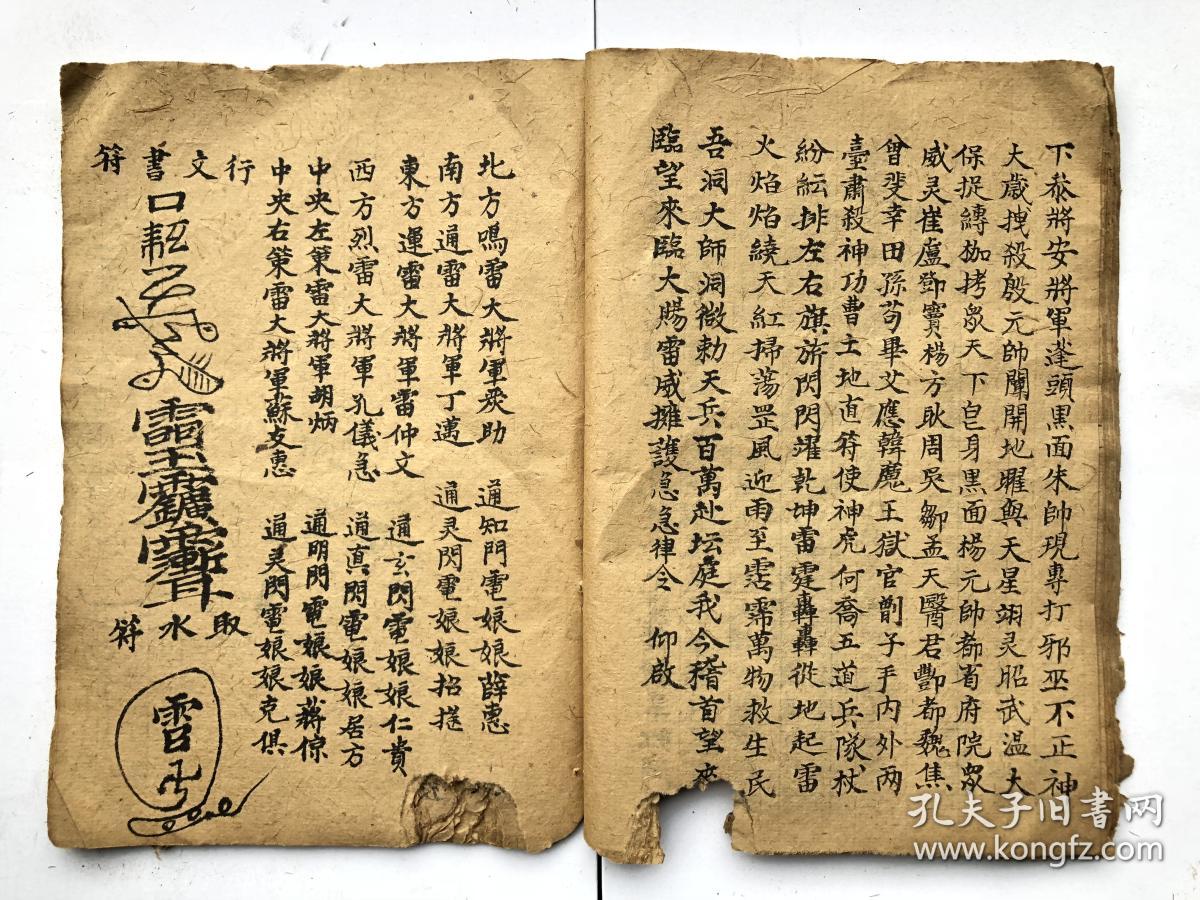 下黎將安將軍蓬頭黑面朱帥現專打邪巫不正神
大歲拽殺殷元帥闡開地腥與天星翊灵昭武温大
保捉縛枷拷眾天下皀身黑面楊元帥都省府院眾
威灵崔盧鄧竇楊方耿周吳鄒孟天醫君酆都魏焦
曾斐幸田孫苟畢艾應韓魔王獄官創子手内外两
臺肅殺神功曹土地直符使神虎何喬五道兵隊杖
紛紜排左右旗旂閃閃躍乾坤雷霆轟轟從地起雷
火焰焰繞天紅掃荡罡風迎雨至雲霈萬物救生民
吾洞大師洞微勅天兵百萬赴坛庭我今稽首望來
臨望來臨大賜雷威擁護急急律令 仰啟
北方鳴雷大將軍炎助 通知門電娘娘薛惠
南方通雷大將軍丁邁 通灵閃電娘娘招提
東方運雷大將軍雷仲文 通玄閃電娘娘仁貴
西方烈雷大將軍孔儀急 通真閃電娘娘居方
中央左策雷大將軍胡炳 通明閃電娘娘蔣倞
中央右策雷大將軍蘇友惠 通灵閃電娘娘克俱
行文書符
取水符
孔夫子旧书网
www.kongfz.com